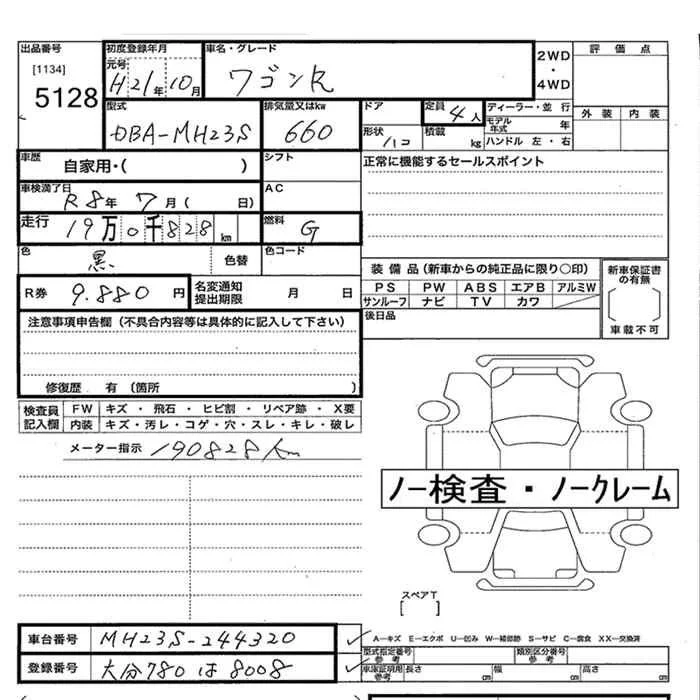 出品番号 初度登録年月 車名・グレード 2WD・4WD 評価点
[1134] 元号 H21年10月 ワゴンR
5128
型式 排気量又はkw ドア 定員 4人 ディーラー・並行 外装 内装
DBA-MH23S 660 形状 /1コ 積載 kg モデル年式 年
ハンドル 左・右
車歴 自家用・( ) シフト 正常に機能するセールスポイント
車検満了日 R8年7月( 日) AC
走行 19万0千828km 燃料 G
色 黒 色替 色コード
装備品(新車からの純正品に限り○印) 新車保証書の有無
R券 9.880円 名変通知提出期限 月 日 PS PW ABS エアB アルミW
サンルーフ ナビ TV カワ
注意事項申告欄(不具合内容等は具体的に記入して下さい) 後日品 車載不可
修復歴 有(箇所 )
検査員記入欄 FW キズ・飛石・ヒビ割・リペア跡・X要
内装 キズ・汚レ・コゲ・穴・スレ・キレ・破レ
メーター指示 190828km
ノー検査・ノークレーム
スペアT
[ ]
車台番号 MH23S-244320 ✓ A―キズ E―エクボ U―凹み W―補修跡 S―サビ C―腐食 XX―交換済
型式指定番号 参考 類別区分番号 参考
登録番号 大分780は8008 ✓ 車庫証明用参考 長さ cm 幅 cm 高さ cm